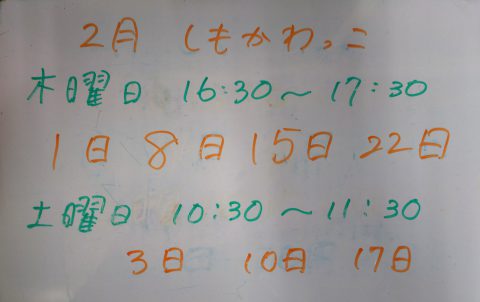 2月 しもかわっこ
木曜日 16:30～17:30
1日 8日 15日 22日
土曜日 10:30～11:30
3日 10日 17日